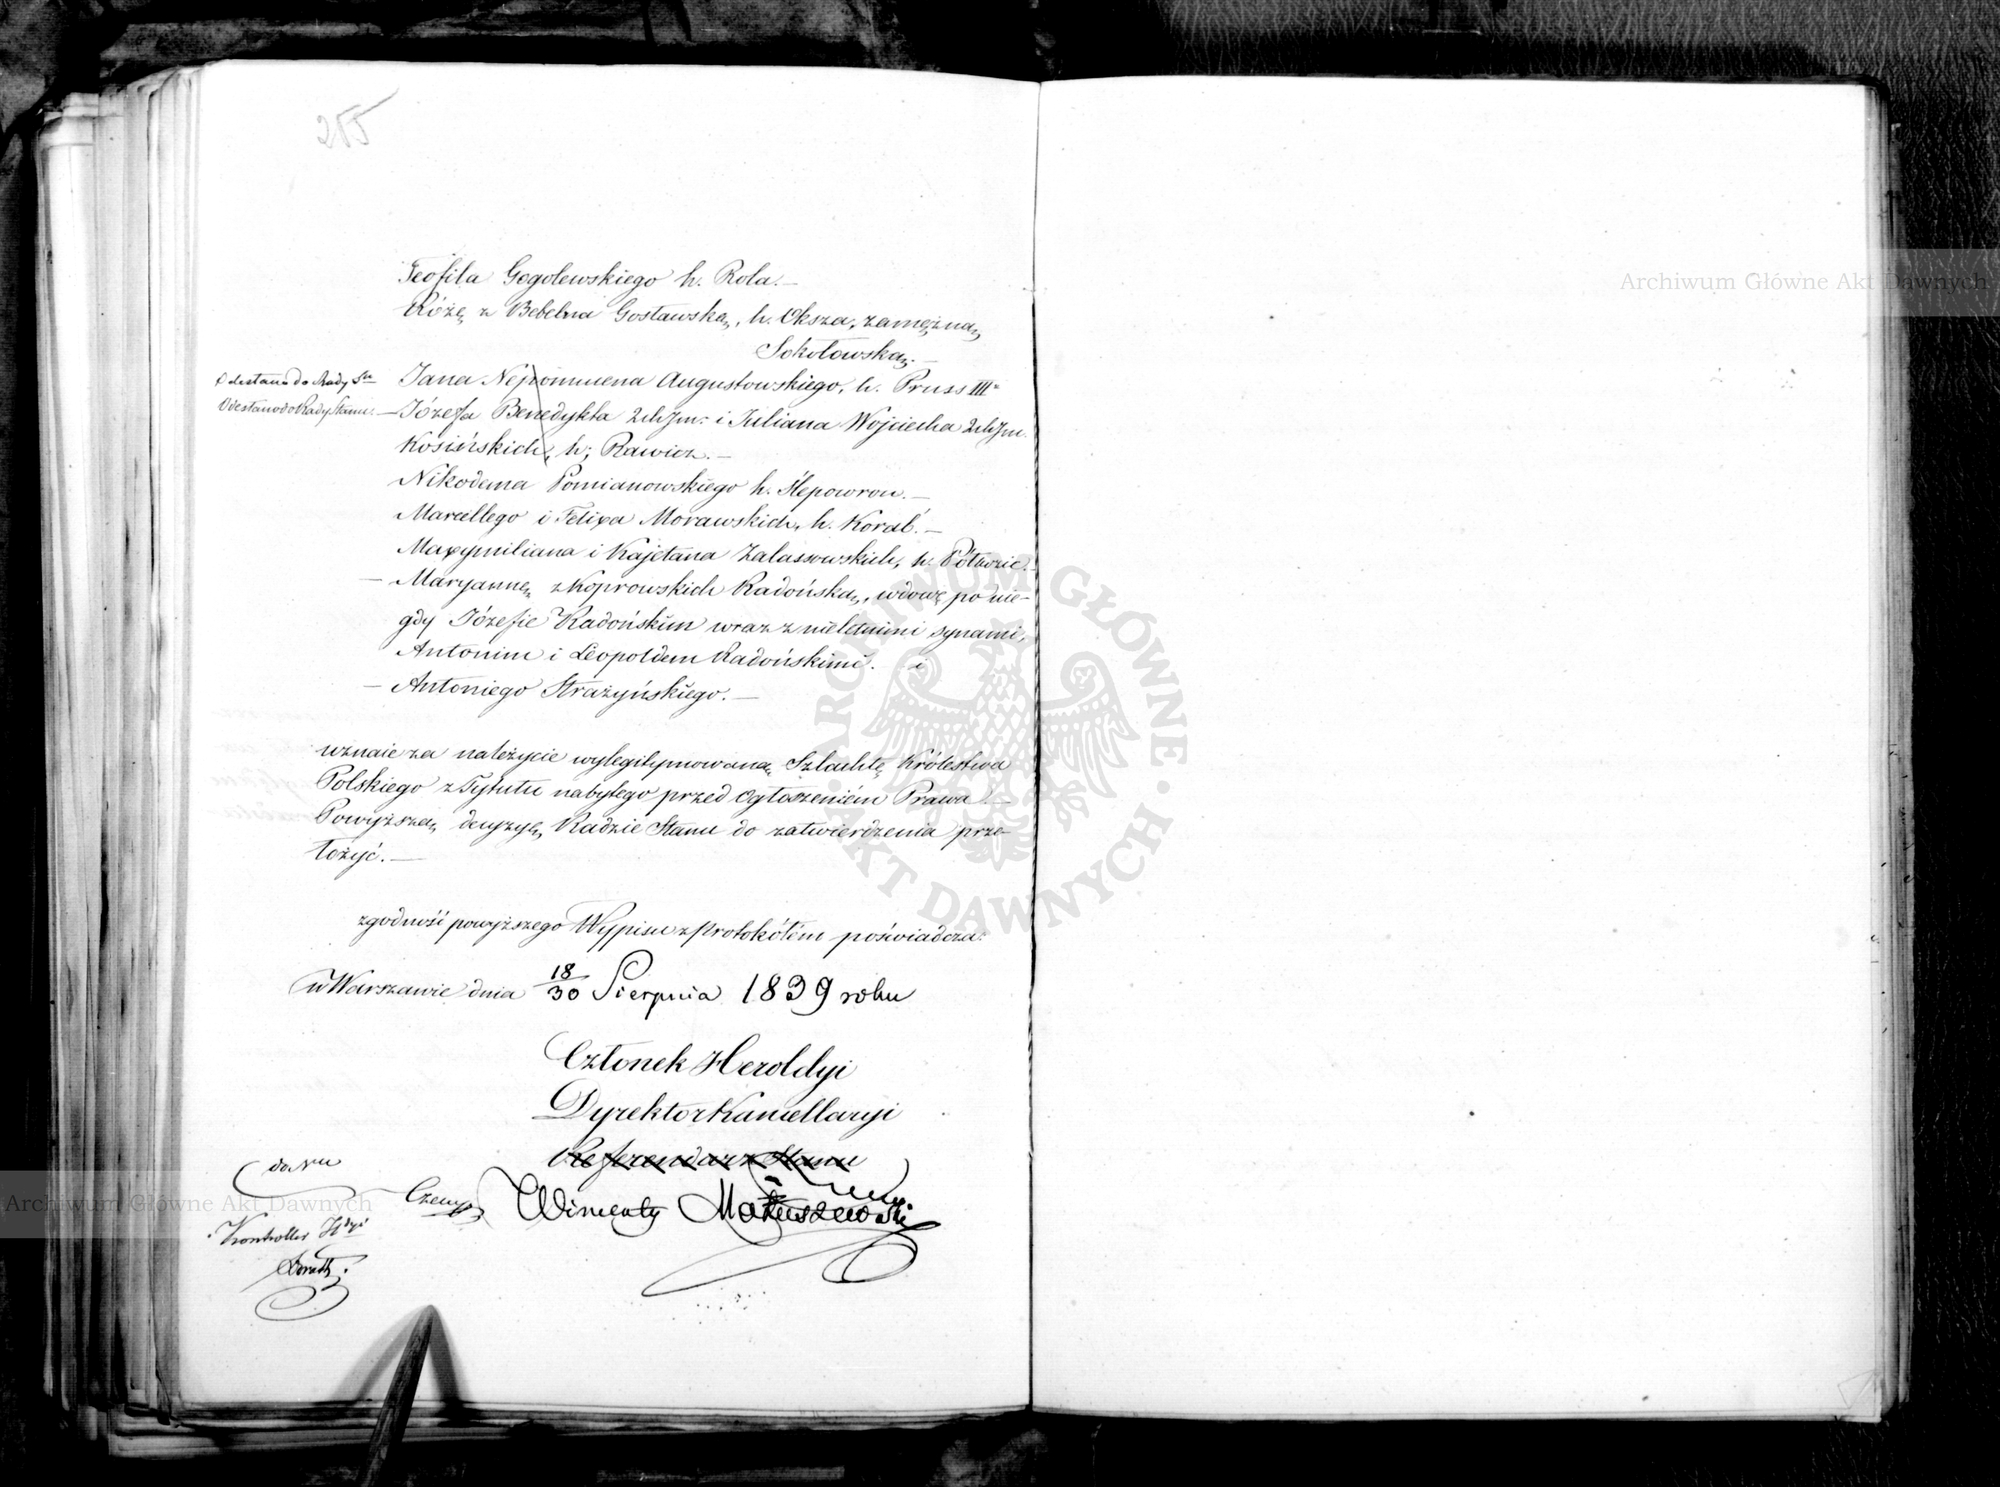 255
Teofila Gogolewskiego h. Rola. —
Różę z Bebelna Gosławską, h. Oksza, zamężną
Sokołowską. —
Odesłano do Rady Stu
Jana Nepomucena Augustowskiego, h. Pruss III°
Odesłano do Rady Stanu. —
Józefa Benedykta 2ch Jm: i Juliana Wojciecha 2ch Jm.
Kosińskich, h; Rawicz. —
Nikodema Pomianowskiego h. Ślepowron. —
Marcellego i Felixa Morawskich, h. Korab. —
Maxymiliana i Kajetana Zalassowskich, h. Półkozic. —
— Maryannę z Koprowskich Radońską, wdowę po nie-
gdy Józefie Radońskim wraz z nieletnimi synami,
Antonim i Leopoldem Radońskimi. i
— Antoniego Strażyńskiego. —
uznaie za należycie wylegitymowaną Szlachtę Królestwa
Polskiego z Tytułu nabytego przed Ogłoszeniem Prawa. —
Powyższą decyzyę Radzie Stanu do zatwierdzenia prze-
łożyć. —
zgodność powyższego Wypisu z Protokółem poświadcza:
w Warszawie dnia 18/30 Sierpnia 1839 roku
Członek Heroldyi
Dyrektor Kancellaryi
Referendarz Stanu
Wincenty Matuszewski
Kontroller Hdyi
ARCHIWUM GŁÓWNE AKT DAWNYCH
Archiwum Główne Akt Dawnych
Archiwum Główne Akt Dawnych